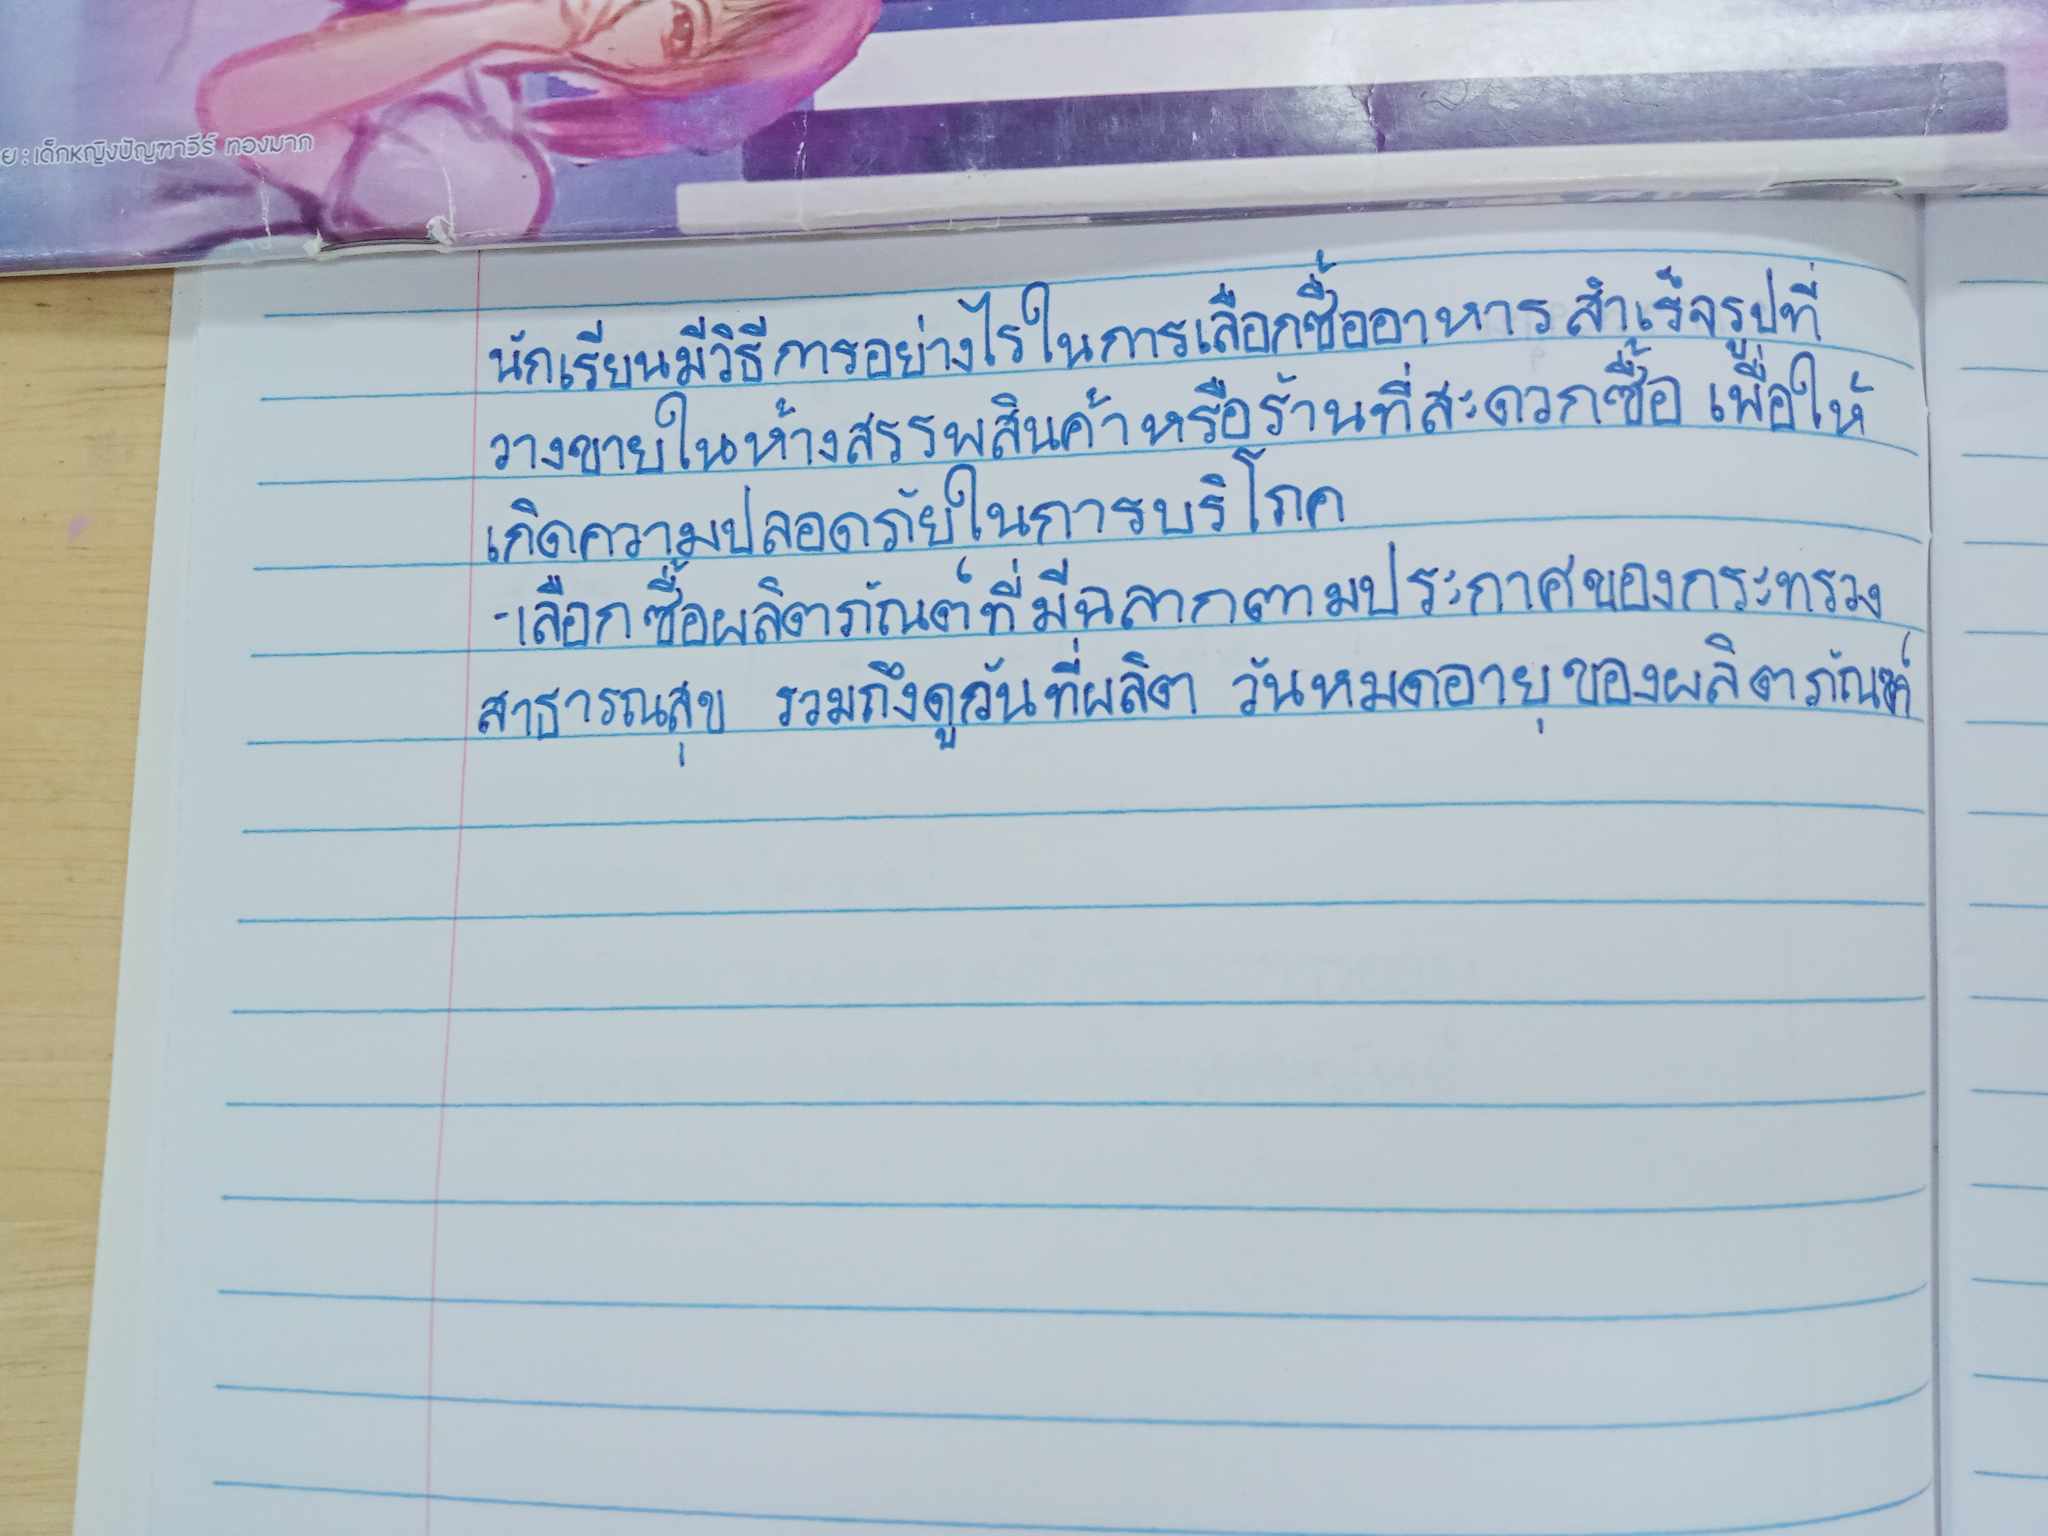 ย : เด็กหญิงปัญฑาวีร์ ทองมาก
นักเรียนมีวิธีการอย่างไรในการเลือกซื้ออาหารสำเร็จรูปที่
วางขายในห้างสรรพสินค้าหรือร้านที่สะดวกซื้อ เพื่อให้
เกิดความปลอดภัยในการบริโภค
-เลือกซื้อผลิตภัณต์ที่มีฉลากตามประกาศของกระทรวง
สาธารณสุข รวมถึงดูวันที่ผลิต วันหมดอายุของผลิตภัณฑ์